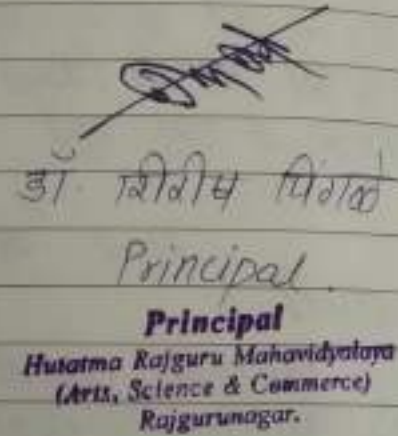 डॉ. शिरीष पिंगळे
Principal.
Principal
Hutatma Rajguru Mahavidyalaya
(Arts, Science & Commerce)
Rajgurunagar.